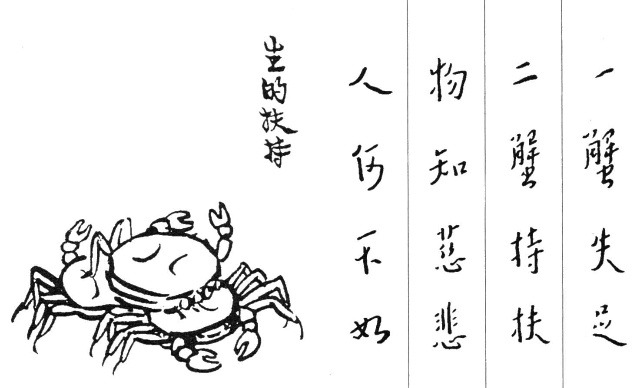 一蟹失足
二蟹持扶
物知慈悲
人何不如
生的扶持